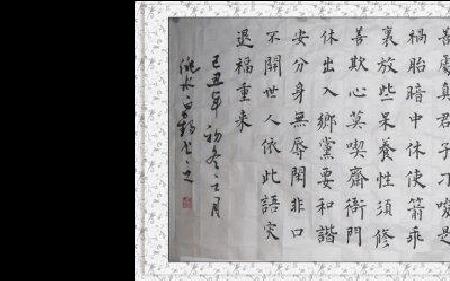 真君子刁唆是
禍胎暗中休使箭乖
裏放些呆養性須修
善欺心莫喫齋衙門
休出入鄉黨要和諧
安分身無辱閑非口
不開世人依此語灾
退福重來
己丑年初冬十一月